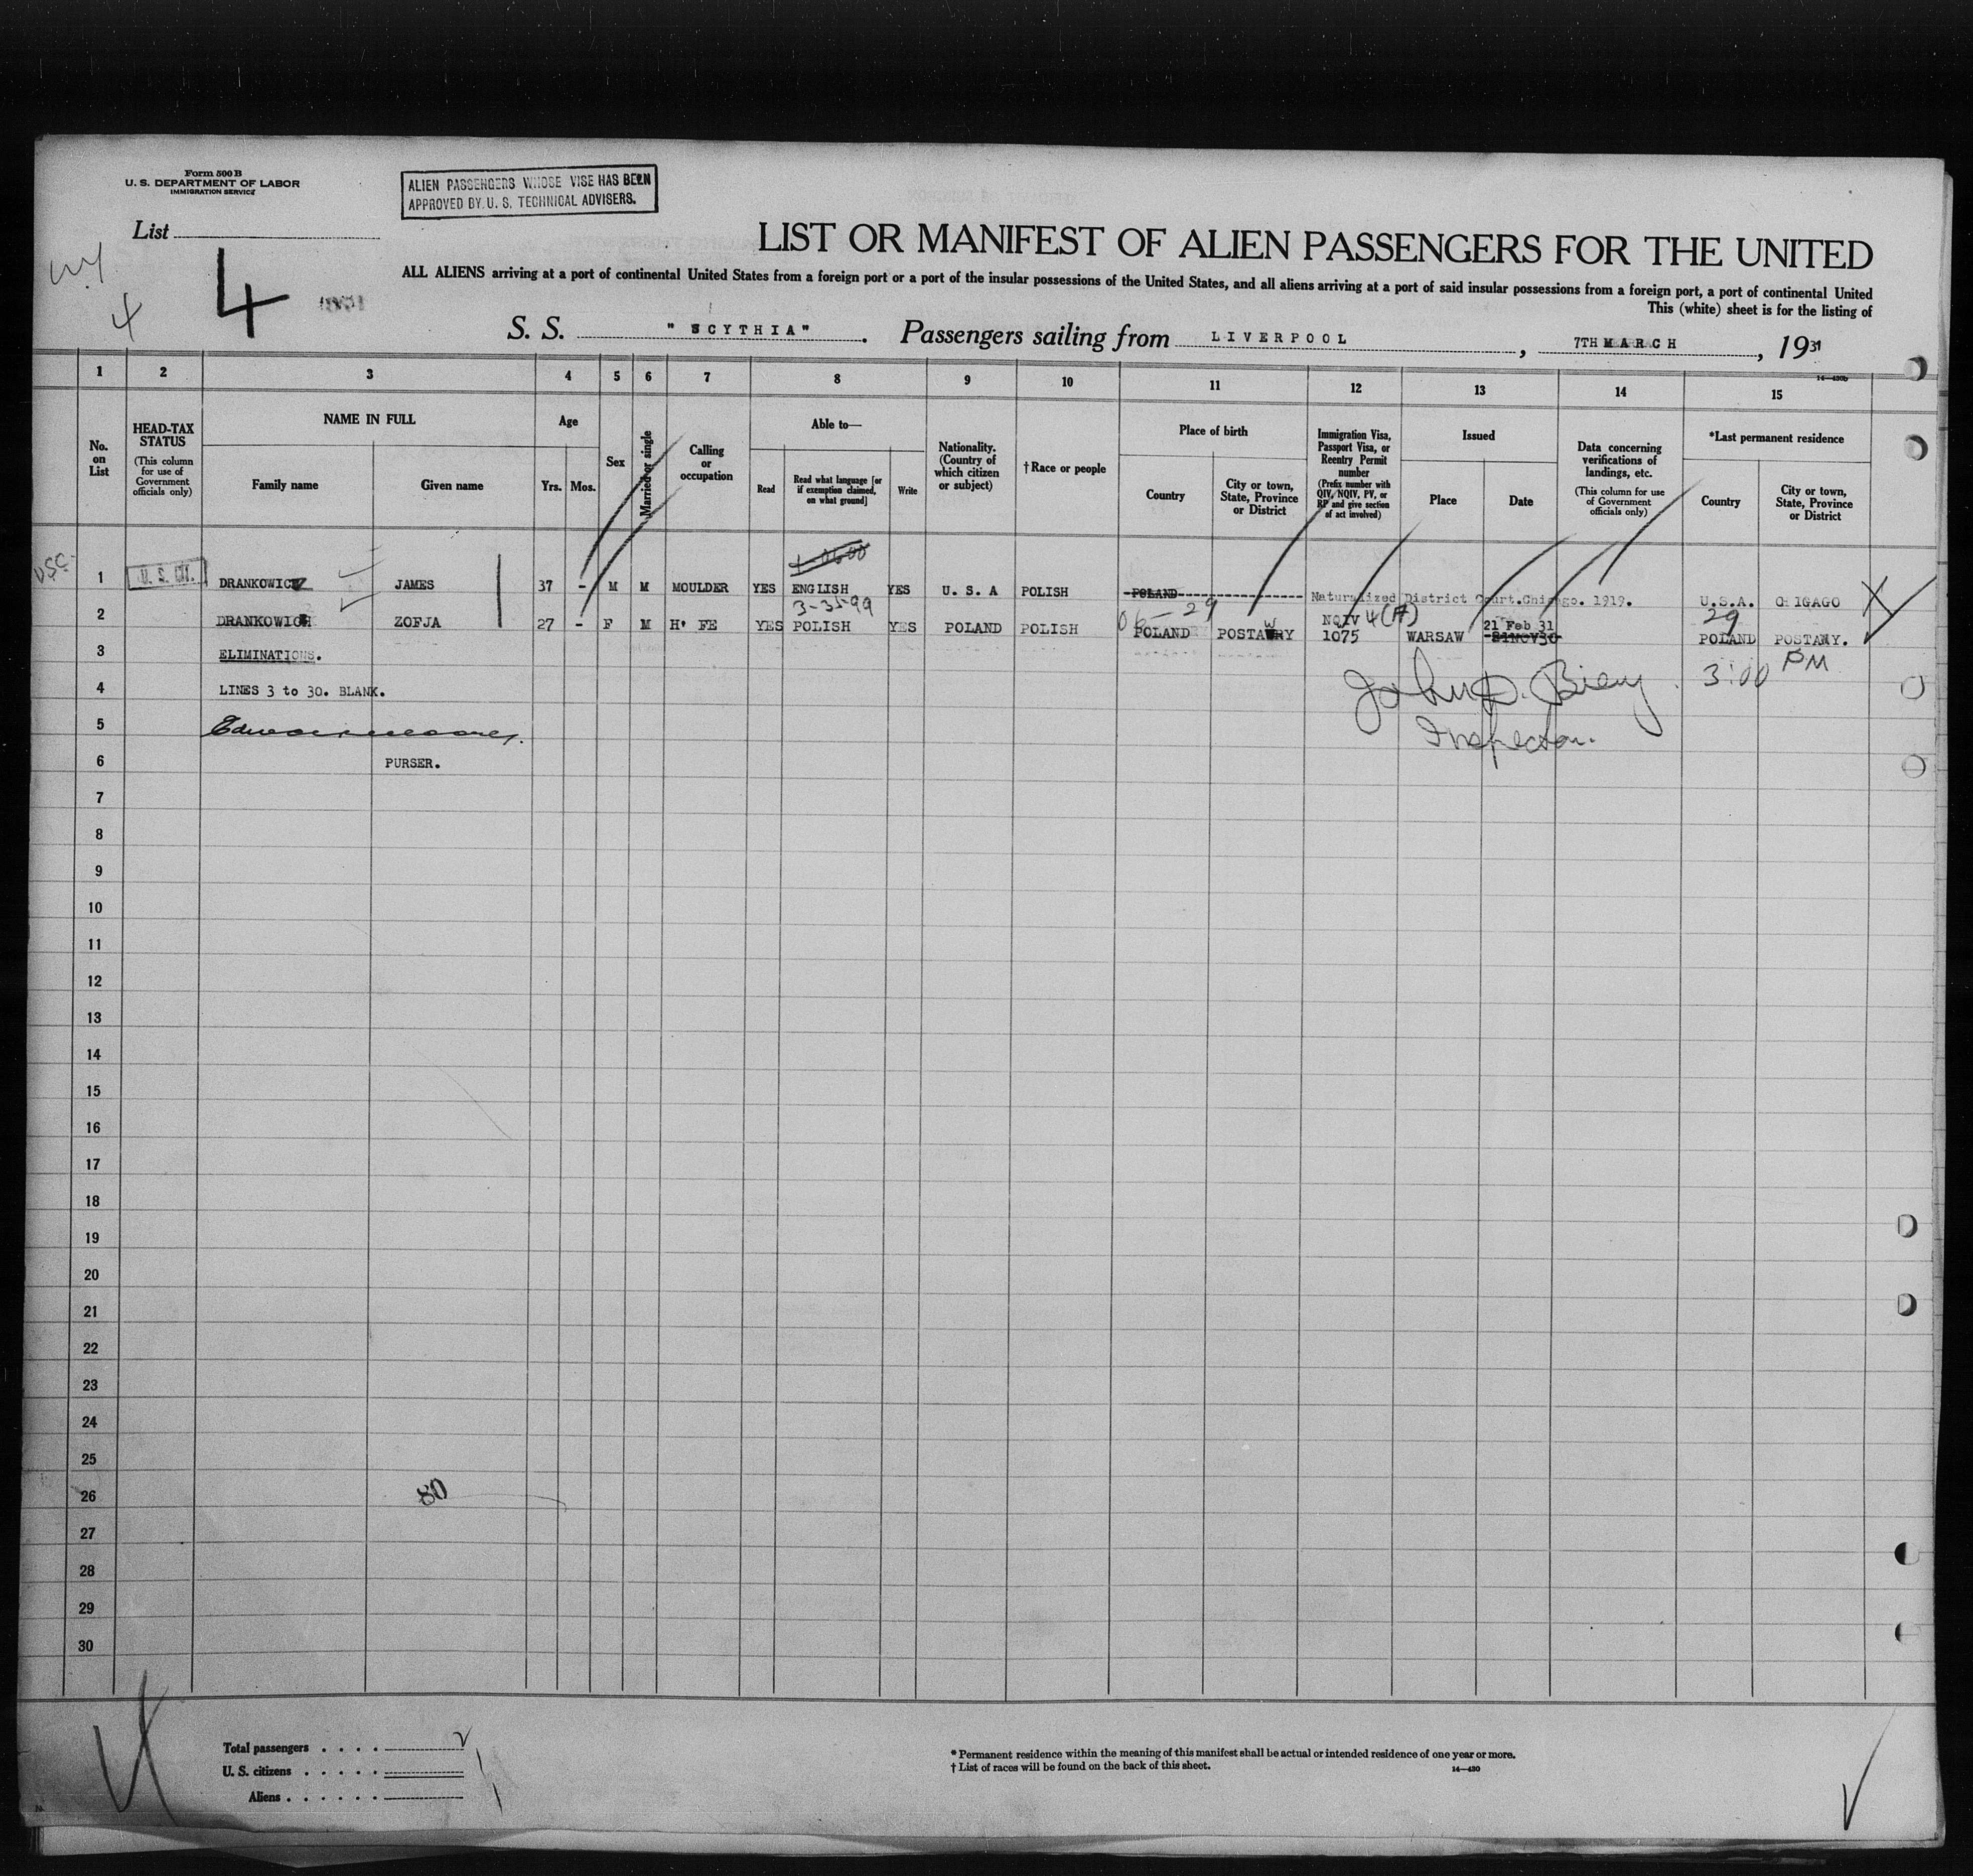 Form 500 B
U. S. DEPARTMENT OF LABOR
IMMIGRATION SERVICE
ALIEN PASSENGERS WHOSE VISE HAS BEEN
APPROVED BY U. S. TECHNICAL ADVISERS.
List
4
4
LIST OR MANIFEST OF ALIEN PASSENGERS FOR THE UNITED
ALL ALIENS arriving at a port of continental United States from a foreign port or a port of the insular possessions of the United States, and all aliens arriving at a port of said insular possessions from a foreign port, a port of continental United
This (white) sheet is for the listing of
S. S. "SCYTHIA". Passengers sailing from LIVERPOOL, 7TH MARCH, 1931
14—430b
1 2 3 4 5 6 7 8 9 10 11 12 13 14 15
No. on List
HEAD-TAX STATUS
(This column for use of Government officials only)
NAME IN FULL
Family name
Given name
Age
Yrs.
Mos.
Sex
Married or single
Calling or occupation
Able to—
Read
Read what language [or if exemption claimed, on what ground]
Write
Nationality. (Country of which citizen or subject)
†Race or people
Place of birth
Country
City or town, State, Province or District
Immigration Visa, Passport Visa, or Reentry Permit number
(Prefix number with QIV, NQIV, PV, or RP and give section of act involved)
Issued
Place
Date
Data concerning verifications of landings, etc.
(This column for use of Government officials only)
*Last permanent residence
Country
City or town, State, Province or District
USC
1 U. S. CIT. DRANKOWICZ JAMES 37 - M M MOULDER YES ENGLISH YES U. S. A POLISH POLAND Naturalized District Court.Chicago. 1919. U.S.A. CHIGAGO
3-3599
06-29
NQIV 4(A)
21 Feb 31
29
2 DRANKOWICH ZOFJA 27 - F M H' FE YES POLISH YES POLAND POLISH POLAND POSTAWRY 1075 WARSAW 21NOV30 POLAND POSTAWY.
W
3 ELIMINATIONS.
3:00 PM
4 LINES 3 to 30. BLANK.
5
Inspector.
6 PURSER.
7
8
9
10
11
12
13
14
15
16
17
18
19
20
21
22
23
24
25
26 80
27
28
29
30
Total passengers . . . . 2
U. S. citizens . . . . . 1
Aliens . . . . . . 1
* Permanent residence within the meaning of this manifest shall be actual or intended residence of one year or more.
† List of races will be found on the back of this sheet.
14—430